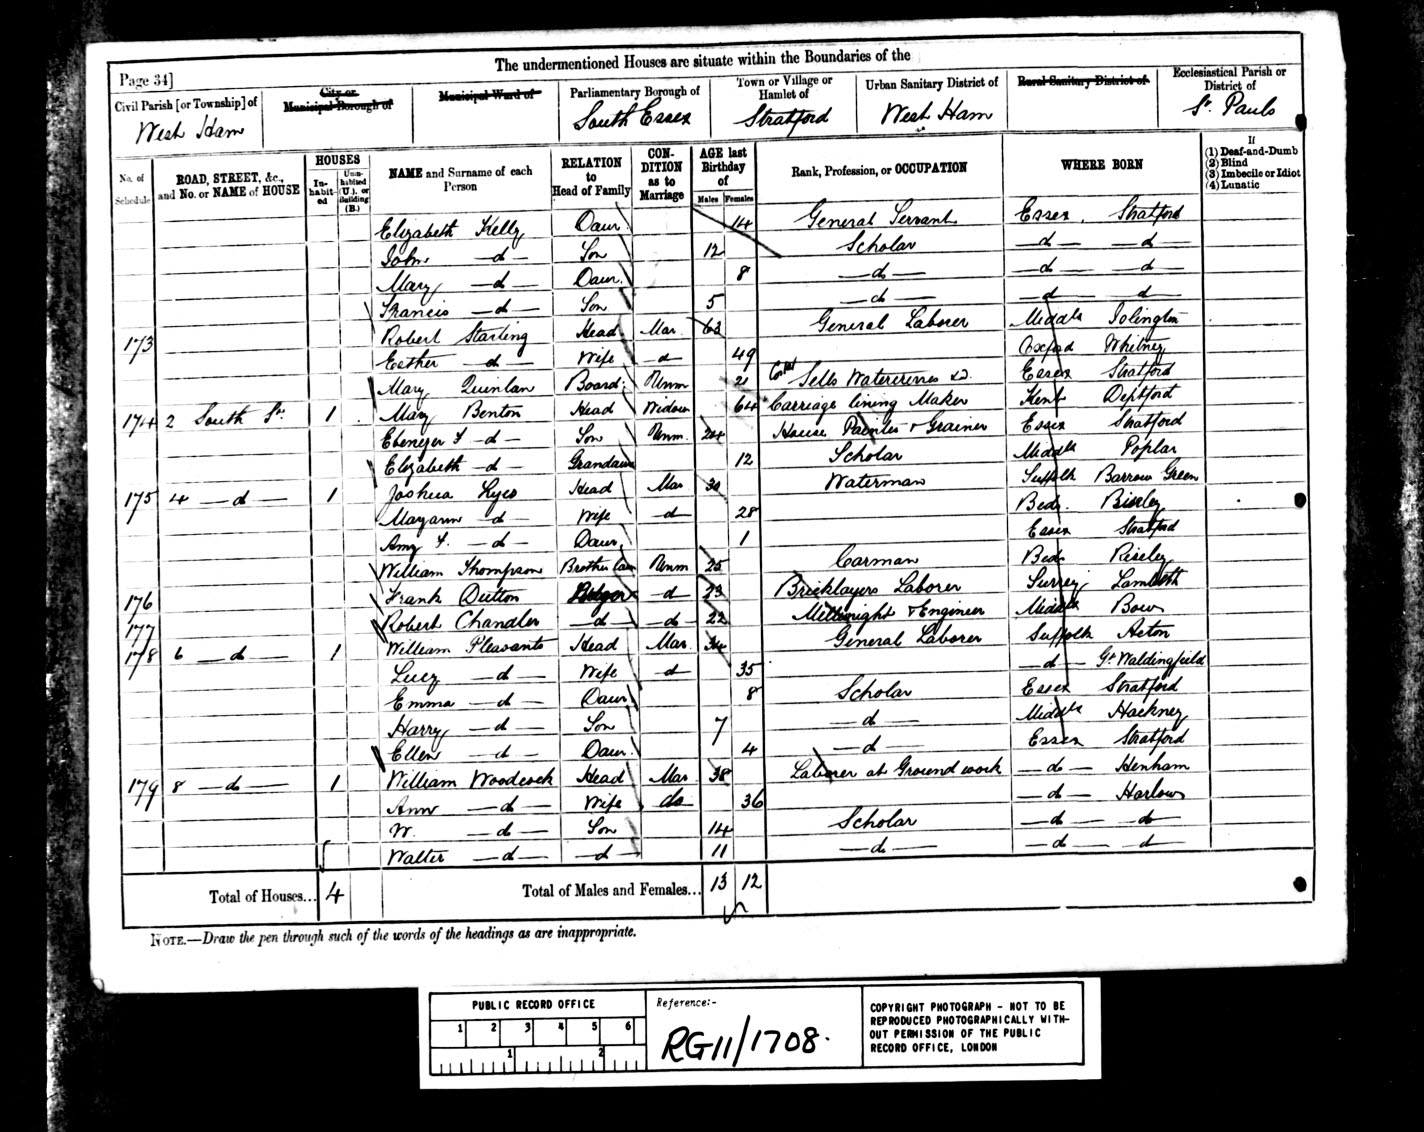 The undermentioned Houses are situate within the Boundaries of the
Page 34]
Civil Parish [or Township] of West Ham
City or Municipal Borough of
Municipal Ward of
Parliamentary Borough of South Essex
Town or Village or Hamlet of Stratford
Urban Sanitary District of West Ham
Rural Sanitary District of
Ecclesiastical Parish or District of St. Pauls
No. of Schedule
ROAD, STREET, &c., and No. or NAME of HOUSE
HOUSES
In-habit-ed
Unin-habited (U.), or Building (B.)
NAME and Surname of each Person
RELATION to Head of Family
CON-DITION as to Marriage
AGE last Birthday of
Males Females
Rank, Profession, or OCCUPATION
WHERE BORN
If
(1) Deaf-and-Dumb
(2) Blind
(3) Imbecile or Idiot
(4) Lunatic
Elizabeth Kelly Daur. 14 General Servant Essex. Stratford
John —d— Son 12 Scholar —d— —d—
Mary —d— Daur. 8 —d— —d— —d—
Francis —d— Son 5 —d— —d— d—
173 Robert Starling Head Mar. 63 General Laborer Middx Islington
Esther —d— Wife —d— 49 Oxford Whitney
Mary Quinlan Board: Unm 21 Sells Watercreses &c. Essex Stratford
174 2 South St. 1 Mary Benton Head Widow 64 Carriage lining Maker Kent Deptford
Ebenezer F —d— Son Unm. 24 House Painter & Grainer Essex Stratford
Elizabeth —d— Grandaur 12 Scholar Middx Poplar
175 4 —d— 1 Joshua Lyes Head Mar 30 Waterman Suffolk Barrow Green
Maryann —d— Wife —d— 28 Beds. Riseley
Amy F. —d— Daur. 1 Essex Stratford
William Thompson Brother law Unm 25 Carman Beds Riseley
176 Frank Dutton Lodger —d— 23 Bricklayers Laborer Surrey Lambeth
177 Robert Chandler —d— —d— 22 Millwright & Engineer Middx Bow
178 6 —d— 1 William Pleasants Head Mar. 34 General Laborer Suffolk Acton
Lucy —d— Wife —d— 35 —d— Gt Waldingfield
Emma —d— Daur 8 Scholar Essex Stratford
Harry —d— Son 7 —d— Middx Hackney
Ellen —d— Daur. 4 —d— Essex Stratford
179 8 —d— 1 William Woodcock Head Mar 38 Laborer at Ground work —d— Henham
Ann —d— Wife do 36 —d— Harlow
W. —d— Son 14 Scholar —d— —d—
Walter —d— —d— 11 —d— —d— —d—
Total of Houses... 4 Total of Males and Females... 13 12
NOTE.—Draw the pen through such of the words of the headings as are inappropriate.
PUBLIC RECORD OFFICE
1 2 3 4 5 6
1 2
Reference:-
RG11/1708.
COPYRIGHT PHOTOGRAPH - NOT TO BE
REPRODUCED PHOTOGRAPHICALLY WITH-
OUT PERMISSION OF THE PUBLIC
RECORD OFFICE, LONDON